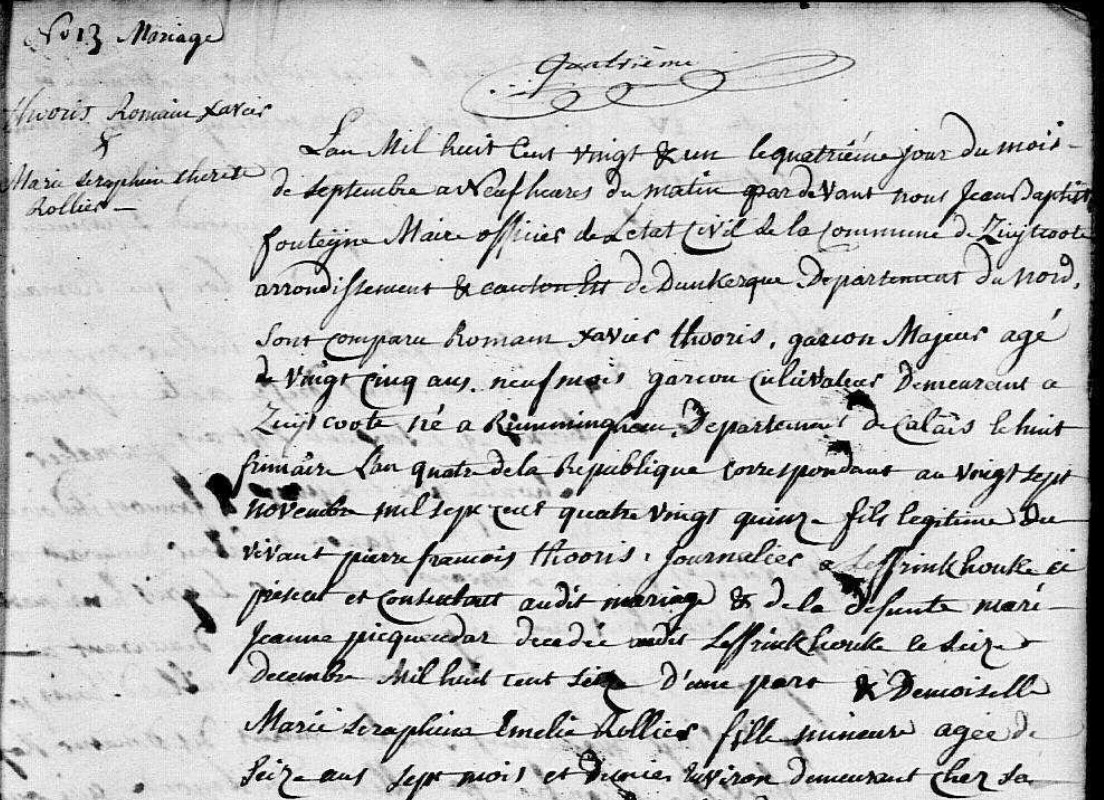 No 13 Mariage
quatrième
thooris Romain Xavier
&
Marie seraphine therese
Rollier
Lan Mil huit Cent vingt & un le quatriéme jour du mois
de septembre a Neuf heures du matin pardevant nous Jean Baptist
fouteyne Maire officier de Letat Civil de la Commune de Zuytcoote
arrondissement & canton Est de Dunkerque Departement du Nord,
sont comparu Romain Xavier thooris, garcon Majeur agé
de vingt cinq ans neuf mois garcon Culivateur Demeurant a
Zuytcoote né a Rumminghem Departement de Calais le huit
frimaire Lan quatre de la Republique correspondant au vingt sept
novembre mil sept cent quatre vingt quinze fils legitime du
vivant pierre francois thooris, Journalier a Leffrinkhouke ci
présent et Consentant audit mariage & de la defunte marie
Jeanne picquendar decedée audit Leffrinkhouke le seize
decembre Mil huit cent seize D'une part & Demoiselle
Marie seraphine Emelie Rollier fille mineure agée de
Seize ans sept mois et demie Environ demeurant chez sa